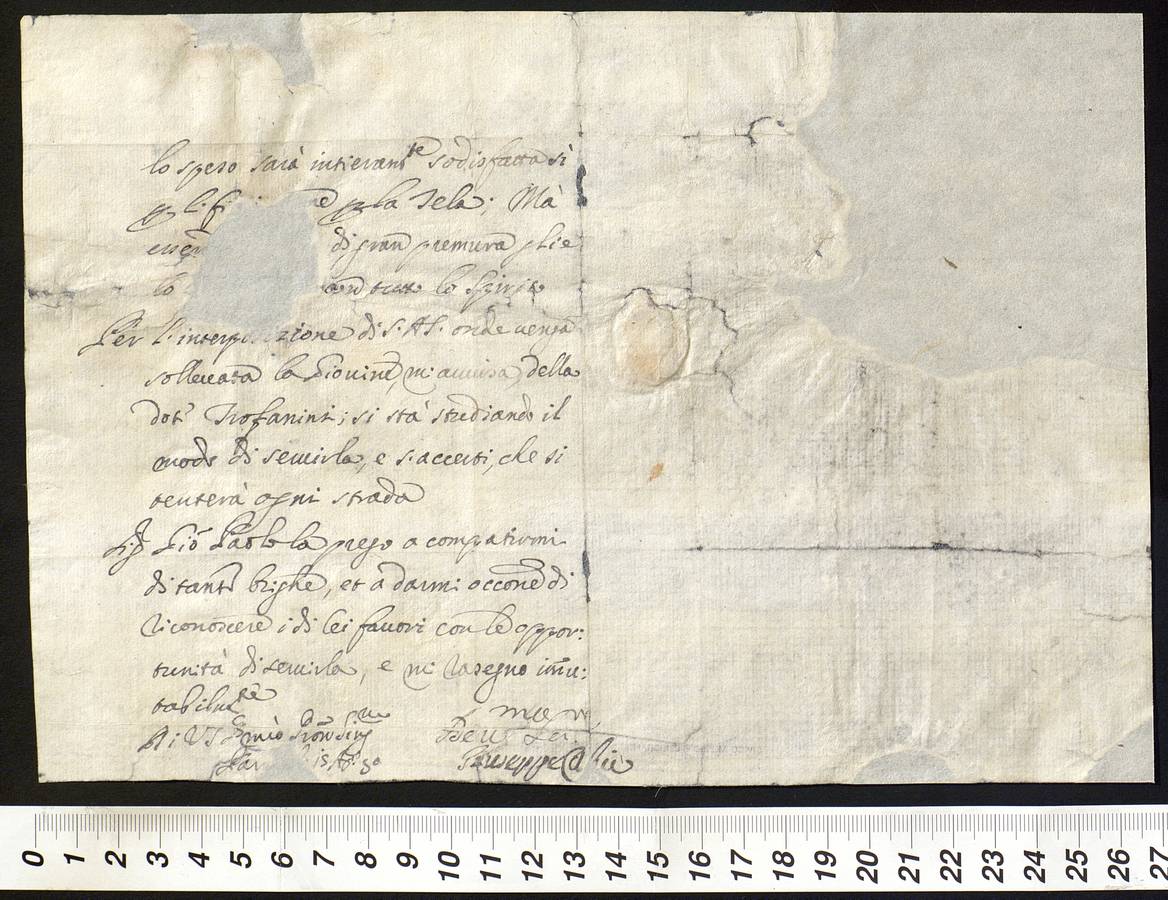 lo spero sarà intieram.te sodisfatta sì
la Tela; Mà
di gran premura glie
lo con tutto lo Spirito
Per l'interpo zione di S. A S. onde venga
sollevata la Giovine, mi avvisa, della
dote Trofanini; si stà studiando il
modo di servirla, e s'accerti, che si
tenterà ogni strada
Sig.r Gio Paolo la prego a compatirmi
di tante brighe, et a darmi occone di
riconoscere i di lei favori con le oppor:
tunità di servirla, e mi rasegno imu:
tabilm.te
Di VS
Giuseppe
0 1 2 3 4 5 6 7 8 9 10 11 12 13 14 15 16 17 18 19 20 21 22 23 24 25 26 27